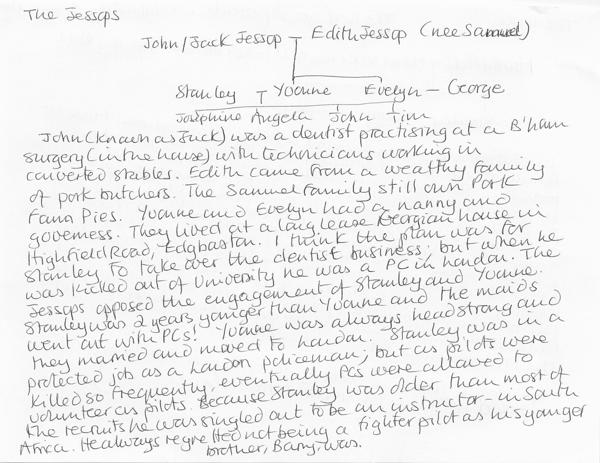 The Jessops
John/Jack Jessop - Edith Jessop (nee Sammuel)
Stanley Yvonne Evelyn - George
Josephine Angela John Tim
John (known as Jack) was a dentist practising at a B'ham
surgery (in the house) with technicians working in
converted stables. Edith came from a wealthy family
of pork butchers. The Sammuel family still own Pork
Farm Pies. Yvonne and Evelyn had a nanny and
governess. They lived at a long lease Georgian house in
Highfield Road, Edgbaston. I think the plan was for
Stanley to take over the dentist business; but when he
was kicked out of University he was a PC in London. The
Jessops opposed the engagement of Stanley and Yvonne.
Stanley was 2 years younger than Yvonne and the maids
went out with PCs! Yvonne was always headstrong and
they married and moved to London. Stanley was in a
protected job as a London policeman; but as pilots were
killed so frequently, eventually PCs were allowed to
volunteer as pilots. Because Stanley was older than most of
the recruits he was singled out to be an instructor - in South
Africa. He always regretted not being a fighter pilot as his younger
brother, Barry, was.